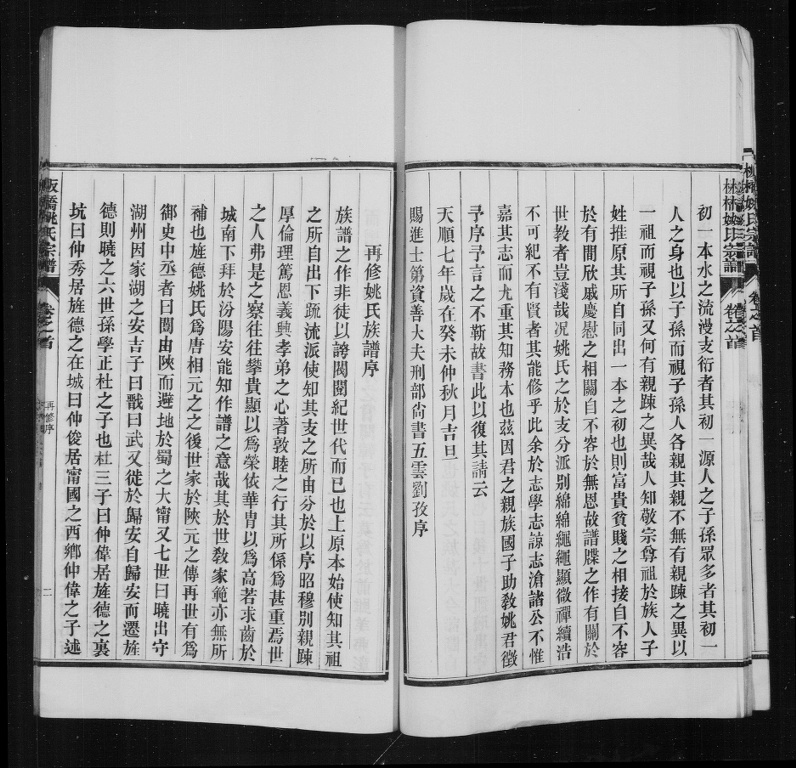 初一本水之流漫支衍者其初一源人之子孫眾多者其初一
人之身也以子孫而視子孫人各親其親不無有親踈之異以
一祖而視子孫又何有親踈之異哉人知敬宗尊祖於族人子
姓推原其所自同出一本之初也則富貴貧賤之相接自不容
於有間欣戚慶慰之相關自不容於無恩故譜牒之作有關於
世教者豈淺哉况姚氏之於支分派别綿綿繩繩顯微禪續浩
不可紀不有賢者其能修乎此余於志學志諒志滄諸公不惟
嘉其志而尤重其知務本也茲因君之親族國子助教姚君徵
予序予言之不靳故書此以復其請云
天順七年歲在癸未仲秋月吉旦
賜進士第資善大夫刑部尙書五雲劉孜序
再修姚氏族譜序
族譜之作非徒以誇閥閱紀世代而已也上原本始使知其祖
之所自出下疏流派使知其支之所由分於以序昭穆别親踈
厚倫理篤恩義興孝弟之心著敦睦之行其所係爲甚重焉世
之人弗是之察往往攀貴顯以爲榮依華胄以爲高若求齒於
城南下拜於汾陽安能知作譜之意哉其於世敎家範亦無所
補也旌德姚氏爲唐相元之之後世家於陝元之傳再世有爲
御史中丞者曰闓由陝而避地於蜀之大甯又七世曰曉出守
湖州因家湖之安吉子曰㦸曰武又徙於歸安自歸安而遷旌
德則曉之六世孫學正杜之子也杜三子曰仲偉居旌德之裏
坑曰仲秀居旌德之在城曰仲俊居甯國之西鄉仲偉之子述
板橋姚氏宗譜
卷之首
再修序
二